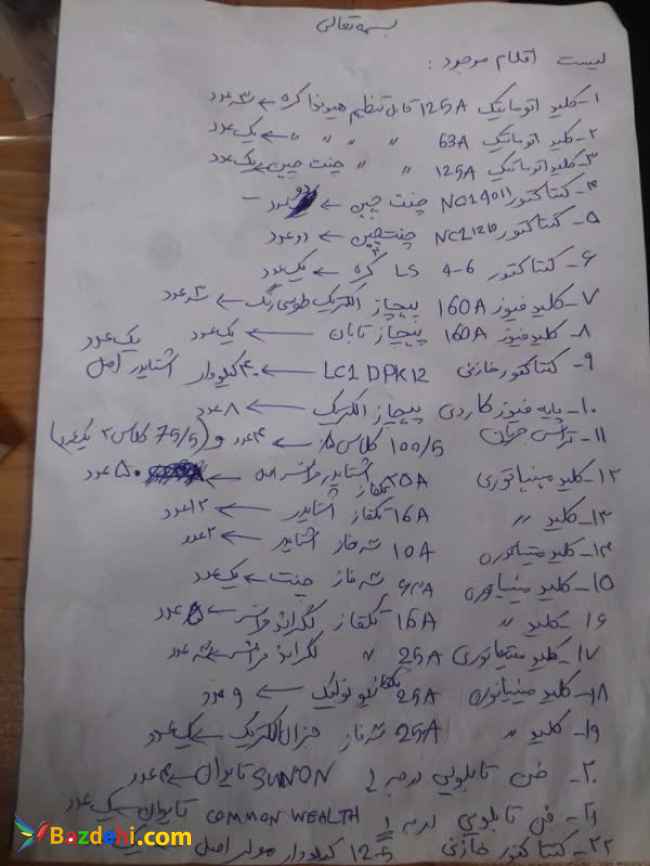 بسمه تعالی
لیست اقلام موجود :
۱- کلید اتوماتیک 125A قابل تنظیم هیوندا کره ← سه عدد
۲- کلید اتوماتیک 63A " " " " ← یک عدد
۳- کلید اتوماتیک 125A " " چنت چین ← یک عدد
۴- کنتاکتور چنت چین ← دو عدد
۵- کنتاکتور چنت چین ← دو عدد
۶- کنتاکتور 4-6 LS کره ← یک عدد
۷- کلید فیوز 160A پیچاز الکتریک طوسی رنگ ← سه عدد
۸- کلید فیوز 160A پیچاز تابان ← یک عدد
۹- کنتاکتور خازنی LC1 DPK12 ← ۴۰ کیلووار اشنایدر اصل یک عدد
۱۰- پایه فیوز کاردی پیچاز الکتریک ← ۸ عدد
۱۱- ترانس جریان 100/5 کلاس ← ۴ عدد و (75/5 کلاس
۱۲- کلید مینیاتوری تکفاز اشنایدر ← ۵۰ عدد
۱۳- کلید " 16A تکفاز اشنایدر ← ۱۲ عدد
۱۴- کلید مینیاتوره 10A سه فاز اشنایدر ← ۲ عدد
۱۵- کلید مینیاتوره سه فاز چنت ← یک عدد
۱۶- کلید " 16A تکفاز لگراند فرانسه ← ۵ عدد
۱۷- کلید مینیاتوری 25A " لگراند فرانسه ← سه عدد
۱۸- کلید مینیاتوره 25A تکفاز ← ۹ عدد
۱۹- کلید " 25A سه فاز جنرال الکتریک ← یک عدد
۲۰- فن تابلویی درجه ۱ SUNON تایوان ← ۴ عدد
۲۱- فن تابلویی درجه ۱ COMMON WEALTH تایوان ← یک عدد
۲۲- کنتاکتور خازنی 12.5 کیلووار اصل
Bazdehi.com